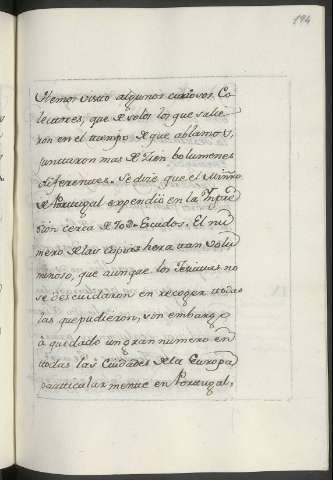 194
Hemos visto algunos curiosos, Co
lectores, que de solos los que salie
ron en el tiempo de que ablamos,
juntaron mas de Zien bolumenes
diferentes. Se dize que el Minño
de Portugal expendió en la Impre
sion cerca de 70d. Escudos. El nu
mero de las copias hera tan volu
minoso, que aunque los Jesuitas no
se descuidaron en recoger todas
las que pudieron, son embargo
á quedado un gran numero en
todas las Ciudades de la Europa
particularmente en Portugal,